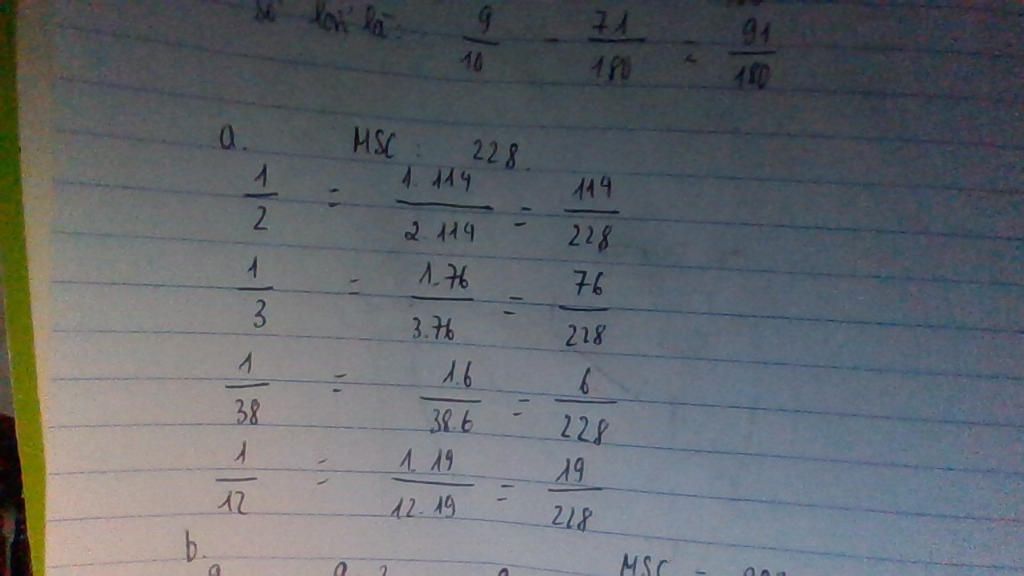 số 9/10 - 71/180 = 91/180
a. MSC : 228.
1/2 = 1.114/2.114 = 114/228
1/3 = 1.76/3.76 = 76/228
1/38 = 1.6/38.6 = 6/228
1/12 = 1.19/12.19 = 19/228
b.
MSC =